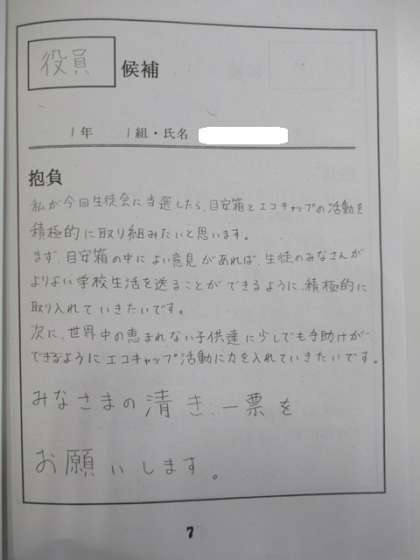 役員 候補
1年 1組・氏名
抱負
私が今回生徒会に当選したら、目安箱とエコキャップの活動を
積極的に取り組みたいと思います。
まず、目安箱の中によい意見があれば、生徒のみなさんが
よりよい学校生活を送ることができるように、積極的に
取り入れていきたいです。
次に、世界中の恵まれない子供達に少しでも手助けが
できるようにエコキャップ活動に力を入れていきたいです。
みなさまの清き、一票を
お願いします。
7